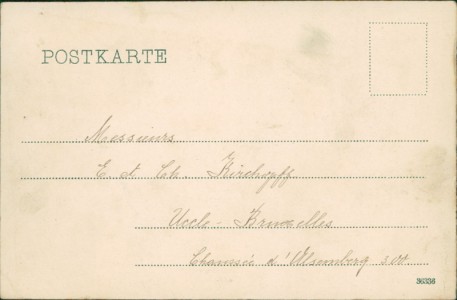 POSTKARTE
Messieurs
E. et Ch. Kirchhoff
Uccle-Bruxelles
Chaussée d'Alsemberg 300
36336